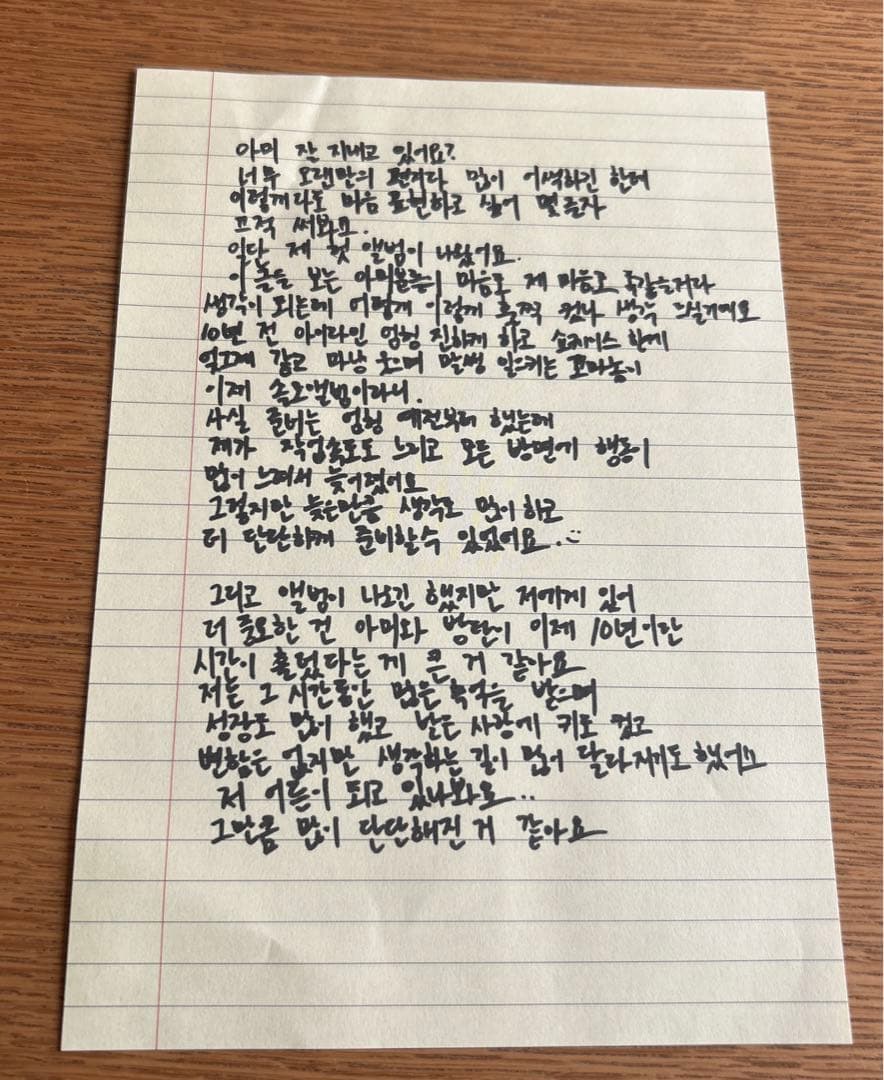 아미 잘 지내고 있어요?
너무 오랜만의 편지다 많이 어색하긴 한데
이렇게라도 마음 표현하고 싶어 몇 글자
끄적 써봐요.
일단 제 첫 앨범이 나왔어요.
이 폴을 보는 아미분들의 마음도 제 마음도 똑같을거라
생각이 되는데 어떻게 이렇게 훌쩍 컸나 생각 드실거에요
10년 전 아이라인 엄청 진하게 하고 쇼케이스 한게
엊그제 같고 마냥 웃으며 말썽 일으키는 꼬마놈이
이제 솔로앨범이라니.
사실 준비는 엄청 예전부터 했는데
제가 작업속도도 느리고 모든 방면에 행동이
많이 느려서 늦어졌어요
그렇지만 늦은만큼 생각도 많이 하고
더 단단하게 준비할수 있었어요.
그리고 앨범이 나오긴 했지만 저에게 있어
더 중요한 건 아미와 방탄이 이제 10년이란
시간이 흘렀다는 게 큰 거 같아요
저는 그 시간동안 많은 추억을 받으며
성장도 많이 했고 받은 사랑에 키도 컸고
변함은 없지만 생각하는 길이 많이 달라지기도 했어요
저 어른이 되고 있나봐요..
그만큼 많이 단단해진 거 같아요